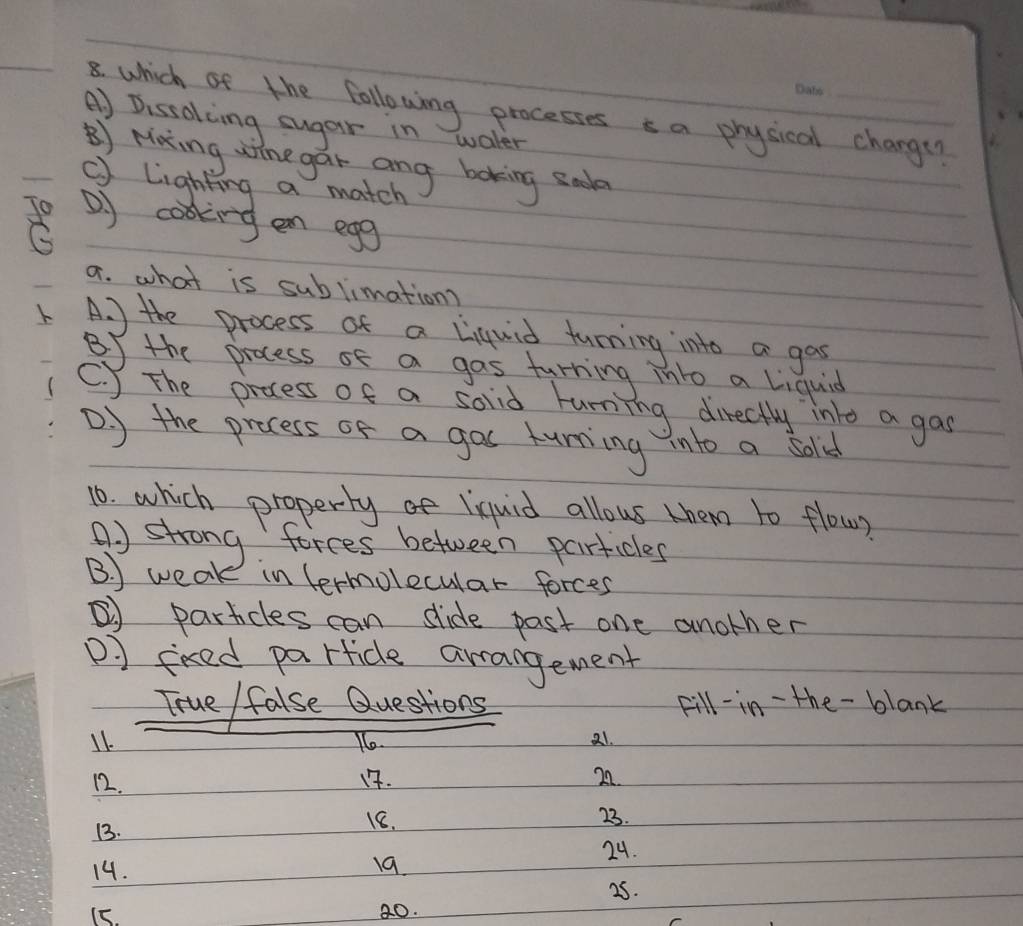 Date
8. Which of the following processes is a physical change?
A.) Dissolcing sugar in water
B.) Mixing vinegar ang baking soda
C.) Lighting a match
D.) cooking en egg
9. what is sublimation?
A.) the process of a Liquid turning into a gas
B.) the process of a gas turning into a Liquid
C.) The process of a solid turning directly into a gas
D.) the process of a gas turning into a Solid
10. which property of liquid allows them to flow?
A.) strong forces between particles
B.) weak intermolecular forces
C.) particles can slide past one another
D.) fixed particle arrangement
True/false Questions Fill-in-the-blank
11. 16. 21.
12. 17. 22.
13. 18. 23.
14. 19. 24.
15. 20. 25.